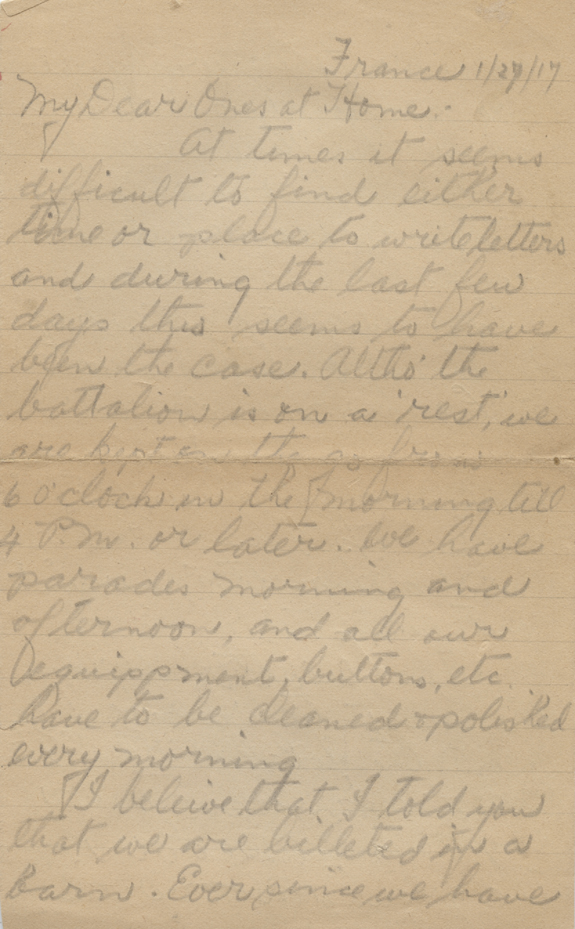 France 1/29/17
My Dear Ones at Home:-
At times it seems
difficult to find either
time or place to write letters
and during the last few
days this seems to have
been the case. Altho' the
battalion is on a 'rest', we
are kept on the go from
6 o'clock in the morning till
4 P.M. or later. We have
parades morning and
afternoon, and all our
equippment, buttons, etc.
have to be cleaned & polished
every morning
I beleive that I told you
that we are billeted in a
barn. Ever since we have